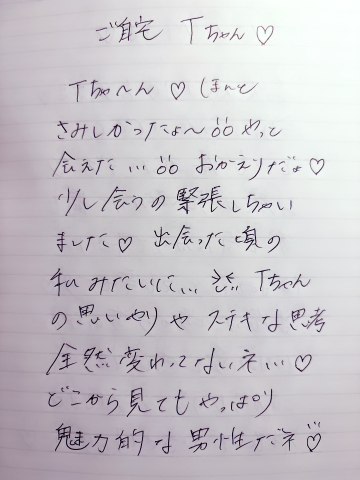 ご自宅 Tちゃん♡
Tちゃ〜ん♡ほんと
さみしかったょ〜 やっと
会えた... おかえりだょ♡
少し会うの緊張しちゃい
ました♡ 出会った頃の
私みたいに... Tちゃん
の思いやりや ステキな思考
全然変わってないネ...♡
どこから見てもやっぱり
魅力的な男性だネ♡